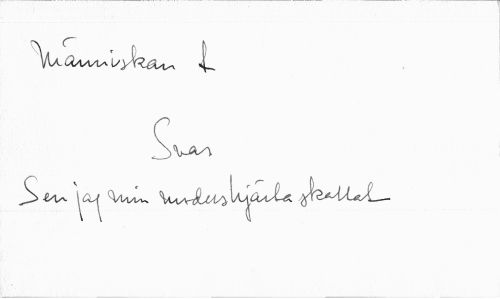 Människan
Svar
Sen jag min modershjärta skallat